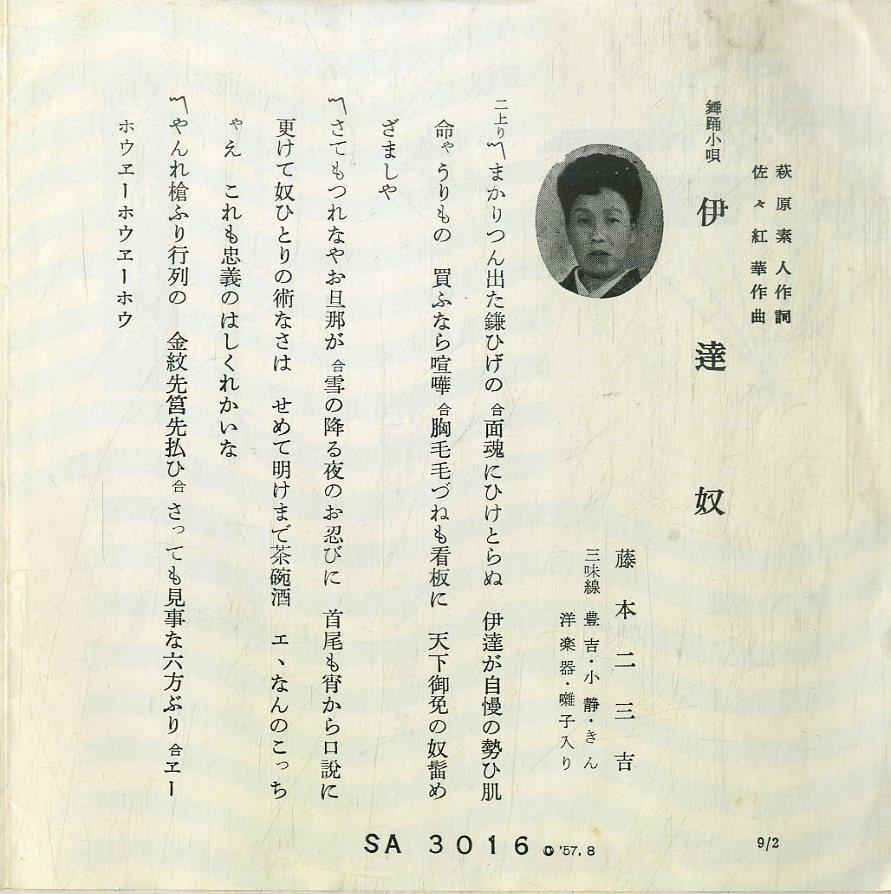 萩原素人作詞
佐々紅華作曲
舞踊小唄
伊達奴
藤本二三吉
三味線 豊吉・小静・きん
洋楽器・囃子入り
二上り〽まかりつん出た鎌ひげの 合面魂にひけとらぬ 伊達が自慢の勢ひ肌
命ゃうりもの 買ふなら喧嘩 合胸毛毛づねも看板に 天下御免の奴髷め
ざましや
〽さてもつれなやお旦那が 合雪の降る夜のお忍びに 首尾も宵から口説に
更けて奴ひとりの術なさは せめて明けまで茶碗酒 エヽなんのこっち
ゃえ これも忠義のはしくれかいな
〽やんれ槍ふり行列の 金紋先筥先払ひ合 さっても見事な六方ぶり 合ヱー
ホウヱーホウヱーホウ
SA 3016 © '57.8
9/2